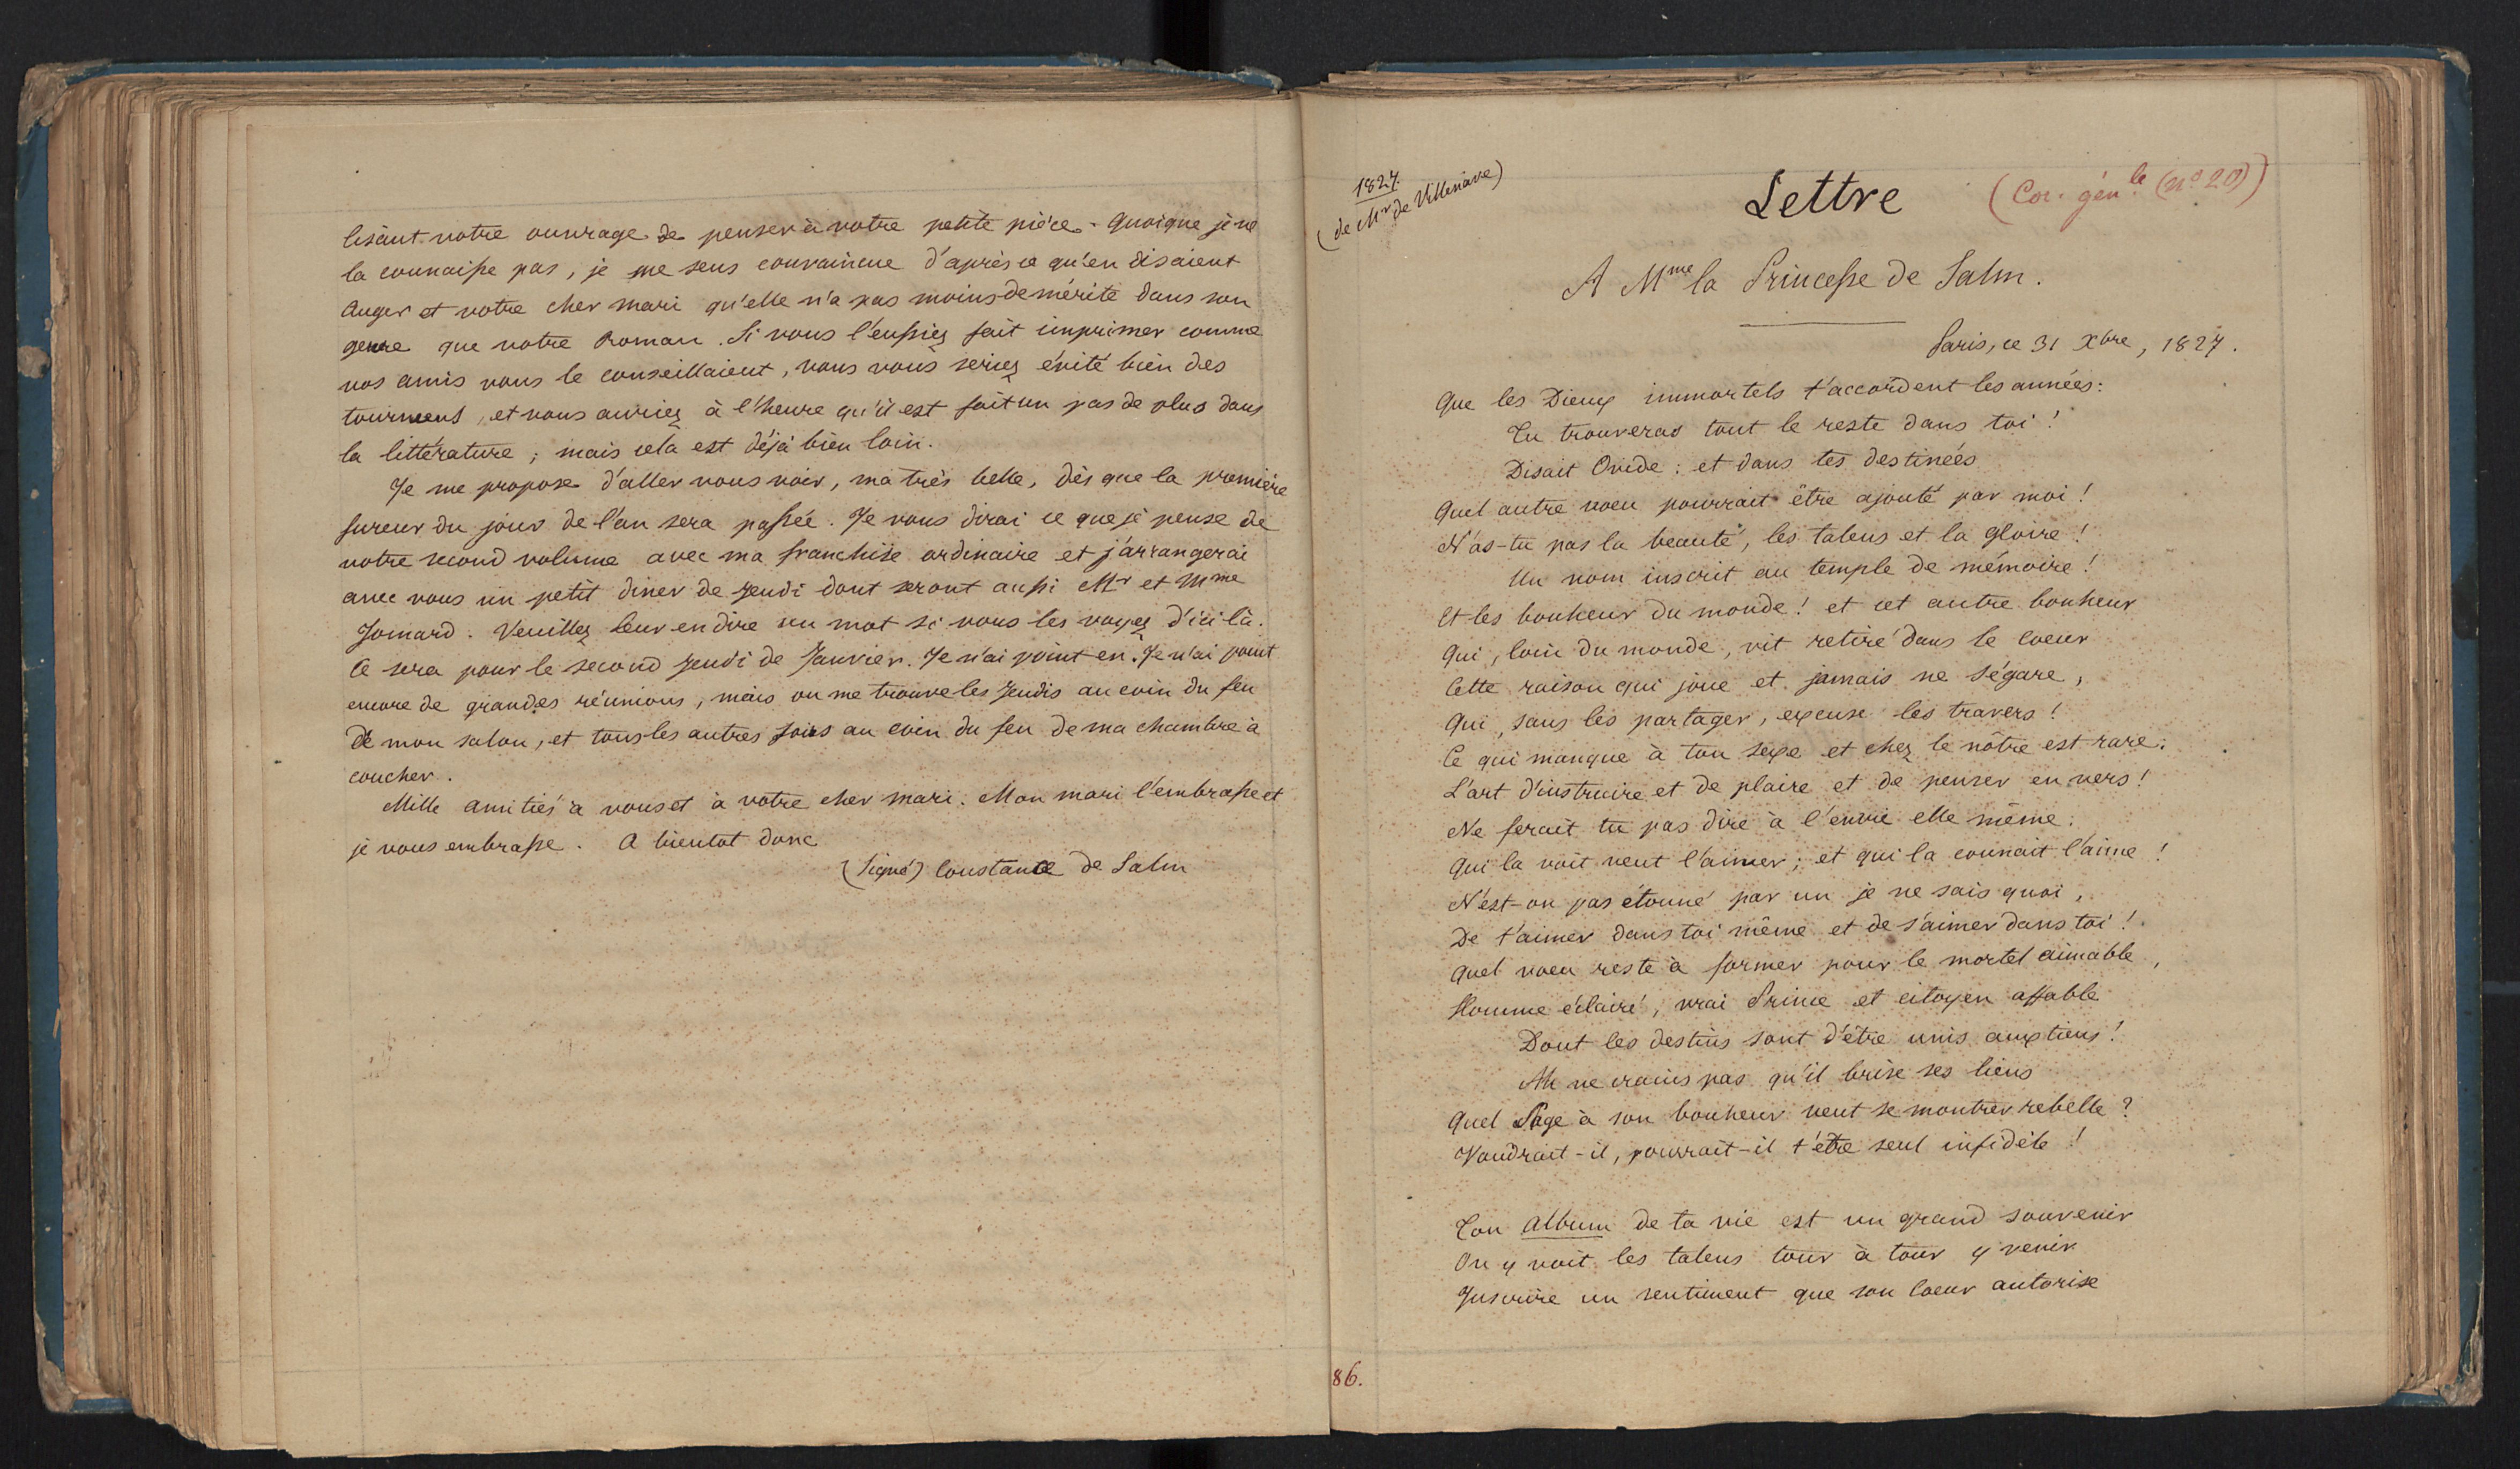 lisant notre ouvrage de penser à votre petite pièce. Quoique je ne
la connaisse pas, je me sens convaincue d'après ce qu'en disaient
Auger et votre cher mari qu'elle n'a pas moins de mérite dans son
genre que votre Roman. Si vous l'eussiez fait imprimer comme
vos amis vous le conseillaient, vous vous seriez évité bien des
tourmens, et vous auriez à l'heure qu'il est fait un pas de plus dans
la littérature; mais cela est déjà bien loin.
Je me propose d'aller vous voir, ma très belle, dès que la première
fureur du jour de l'an sera passée. Je vous dirai ce que je pense de
votre second volume avec ma franchise ordinaire et j'arrangerai
avec vous un petit diner de Jeudi dont seront aussi Mr et Mme
Jomard. Veuillez leur en dire un mot si vous les voyez d'ici là.
Ce sera pour le second Jeudi de Janvier. Je n'ai point en. Je n'ai point
encore de grandes réunions, mais on me trouve les Jeudis au coin du feu
de mon salon, et tous les autres soirs au coin du feu de ma chambre à
coucher.
Mille amitiés à vous et à votre cher mari. Mon mari l'embrasse et
je vous embrasse. A bientot donc
(Signé) Constance de Salm
1827.
(de Mr de Villenave)
Lettre (Cor. génle (no 20))
A Mme la Princesse de Salm.
Paris, ce 31 Xbre, 1827.
Que les Dieux immortels t'accordent les années:
Tu trouveras tout le reste dans toi!
Disait Ovide: et dans tes destinées
Quel autre voeu pourrait être ajouté par moi!
N'as-tu pas la beauté, les talens et la gloire!
Un nom inscrit au temple de mémoire!
Et les bonheur du monde! et cet autre bonheur
Qui, loin du monde, vit retiré dans le coeur
Cette raison qui joue et jamais ne s'égare,
Qui, sans les partager, excuse les travers!
Ce qui manque à ton sexe et chez le nôtre est rare:
L'art d'instruire et de plaire et de penser en vers!
Ne ferait tu pas dire à l'envie elle même:
Qui la voit veut l'aimer; et qui la connait l'aime!
N'est-on pas étonné par un je ne sais quoi,
De t'aimer dans toi même et de s'aimer dans toi!
Quel voeu reste à former pour le mortel aimable,
Homme éclairé, vrai Prince et citoyen affable
Dont les destins sont d'être unis aux tiens!
Ah ne crains pas qu'il brise ses liens
Quel Sage à son bonheur veut se montrer rebelle?
Voudrait-il, pourrait-il t'être seul infidèle!
Ton album de ta vie est un grand souvenir
On y voit les talens tour à tour y venir
Inscrire un sentiment que son coeur autorise
86.